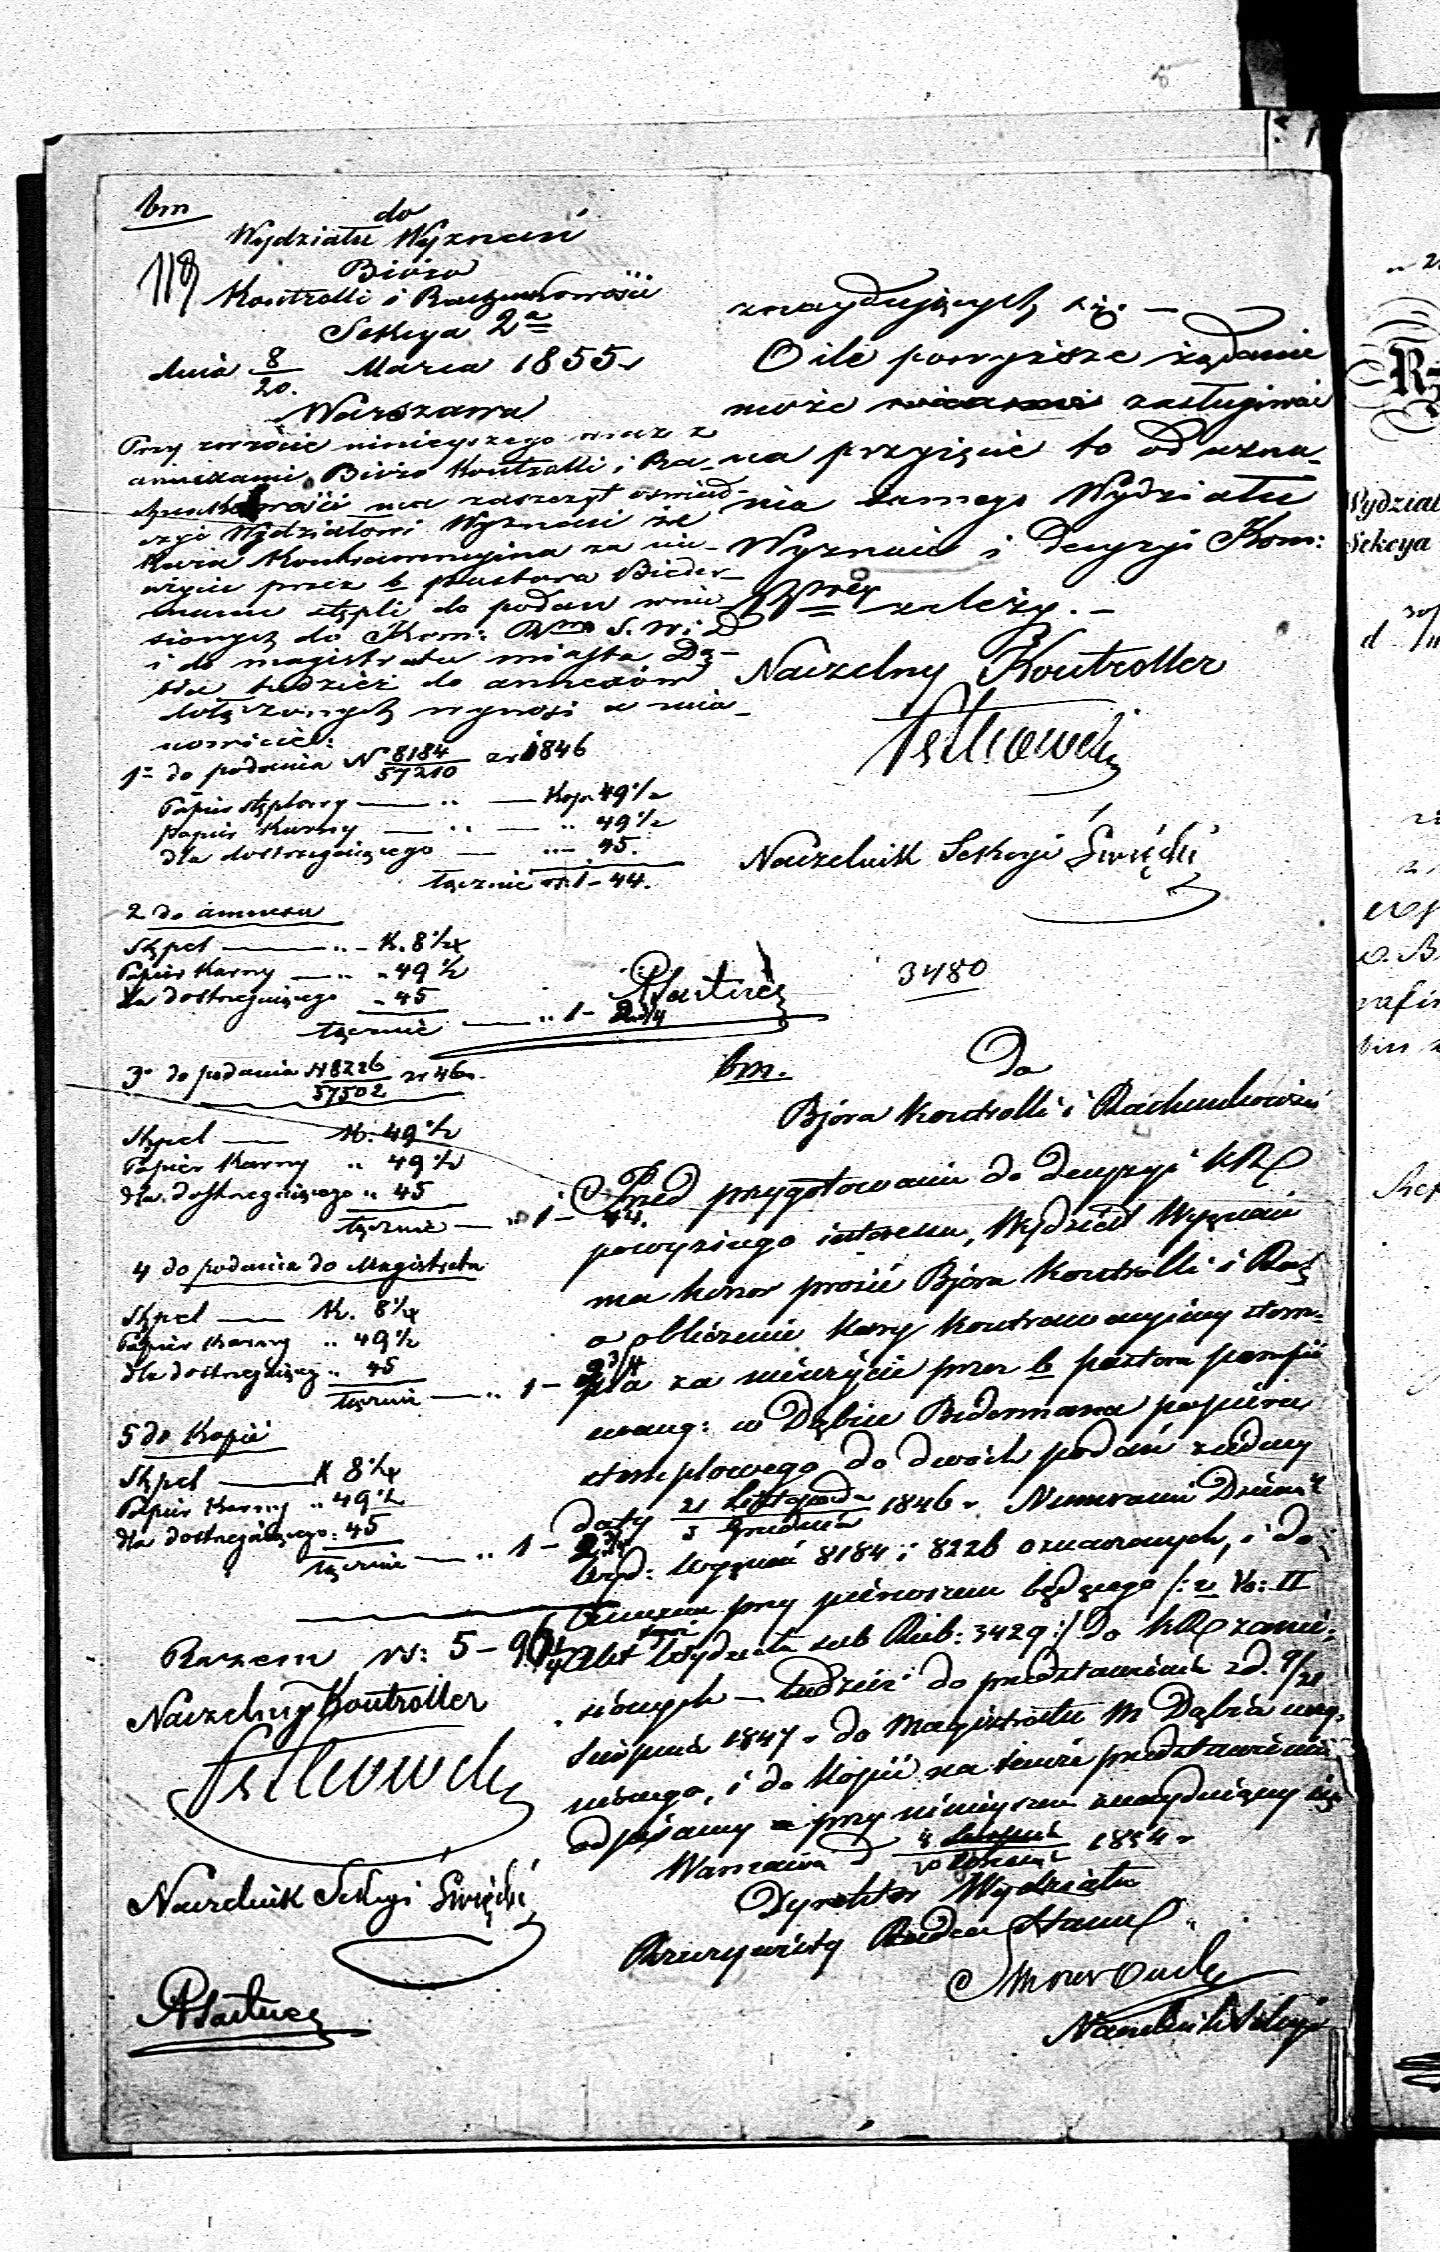 bm
do
Wydziału Wyznań
118
Bióro
Kontrolli i Rachunkowości
Sekcya 2a
dnia 8/20. Marca 1855 r
Warszawa
Przy zwrocie niniejszego wraz z
annexami, Bióro Kontrolli i Ra-
chunkowości ma zaszczyt oświad-
czyć Wydziałowi Wyznań że
Kara Kontrawencyjna za nie-
użycie przez b pastora Bieder-
mana stępli do podań wnie-
sionych do Kom: Rzm S. W: i D
i do magistratu miasta Dą-
bia tudzież do annexów
dołączonych wynosi a mia-
nowicie:
1= do podania N 8184/57210 zr 1846
Papier stęplowy — „ — Kop. 49 1/2
Papier Karny — „ — „ 49 1/2
dla dostrzegającego — „ — 45.
łącznie rs. 1 - 44.
2 do annexu
Stępel — „ - K. 8 1/4
Papier Karny — „ „ 49 1/2
dla dostrzegającego „ 45
łącznie — „ 1 - 2 3/4
3o do podania N 8226/57502 zr 46
Stępel — K. 49 1/2
Papier Karny „ 49 1/2
dla dostrzegającego „ 45
łącznie — „ 1 - 44.
4 do podania do Magistratu
Stępel — K. 8 1/4
Papier Karny „ 49 1/2
dla dostrzegającego „ 45
łącznie — „ 1 - 2 3/4
5 do Kopii
Stępel — K 8 1/4
Papier Karny „ 49 1/2
dla dostrzegającego „ 45
łącznie — „ 1 - 2 3/4
Razem rs: 5 - 96 1/4
Naczelny Kontroller
Naczelnik Sekcyi Święcki
znajdujących się. —
O ile powyższe żądanie
może zasługiwać
na przyjęcie to od uzna-
nia samego Wydziału
Wyznań i decyzyi Kom:
Rzzdej zależy. —
Naczelny Kontroller
Naczelnik Sekcyi Święcki
3480
bm. Do
Bjóra Kontrolli i Rachunkowości
Przed przygotowaniem do decyzyi KR
powyższego interesu, Wydział Wyznań
ma honor prosić Bjóra Kontrolli i Rach
o obliczenie Kary Kontrawencyjney stem-
pla za nieużycie przez b pastora parafii
ewang: w Dąbiu Bidermana papieru
stemplowego do dwóch podań
daty 21 Listopada/3 Grudnia 1846 r Numerami Dzien:
Wyd: Wyznań 8184 i 8226 oznaczonych, i do
annexu przy pierwszem będącego /: w Vo: II
Akt Wydziału sub Rub: 3429 :/ do KR zanie-
sionych — tudzież do przedstawienia z d. 9/21
Sierpnia 1847 r do Magistratu M Dąbia wnie-
sionego, i do Kopii na temże przedstawieniu
odpisaney a przy niniejszem znaydującey się
Warszawa d 1854 r
Dyrektor Wydziału
Rzeczywisty Radca Stanu
Naczelnik Sekcyi
Wydział
Sekcya